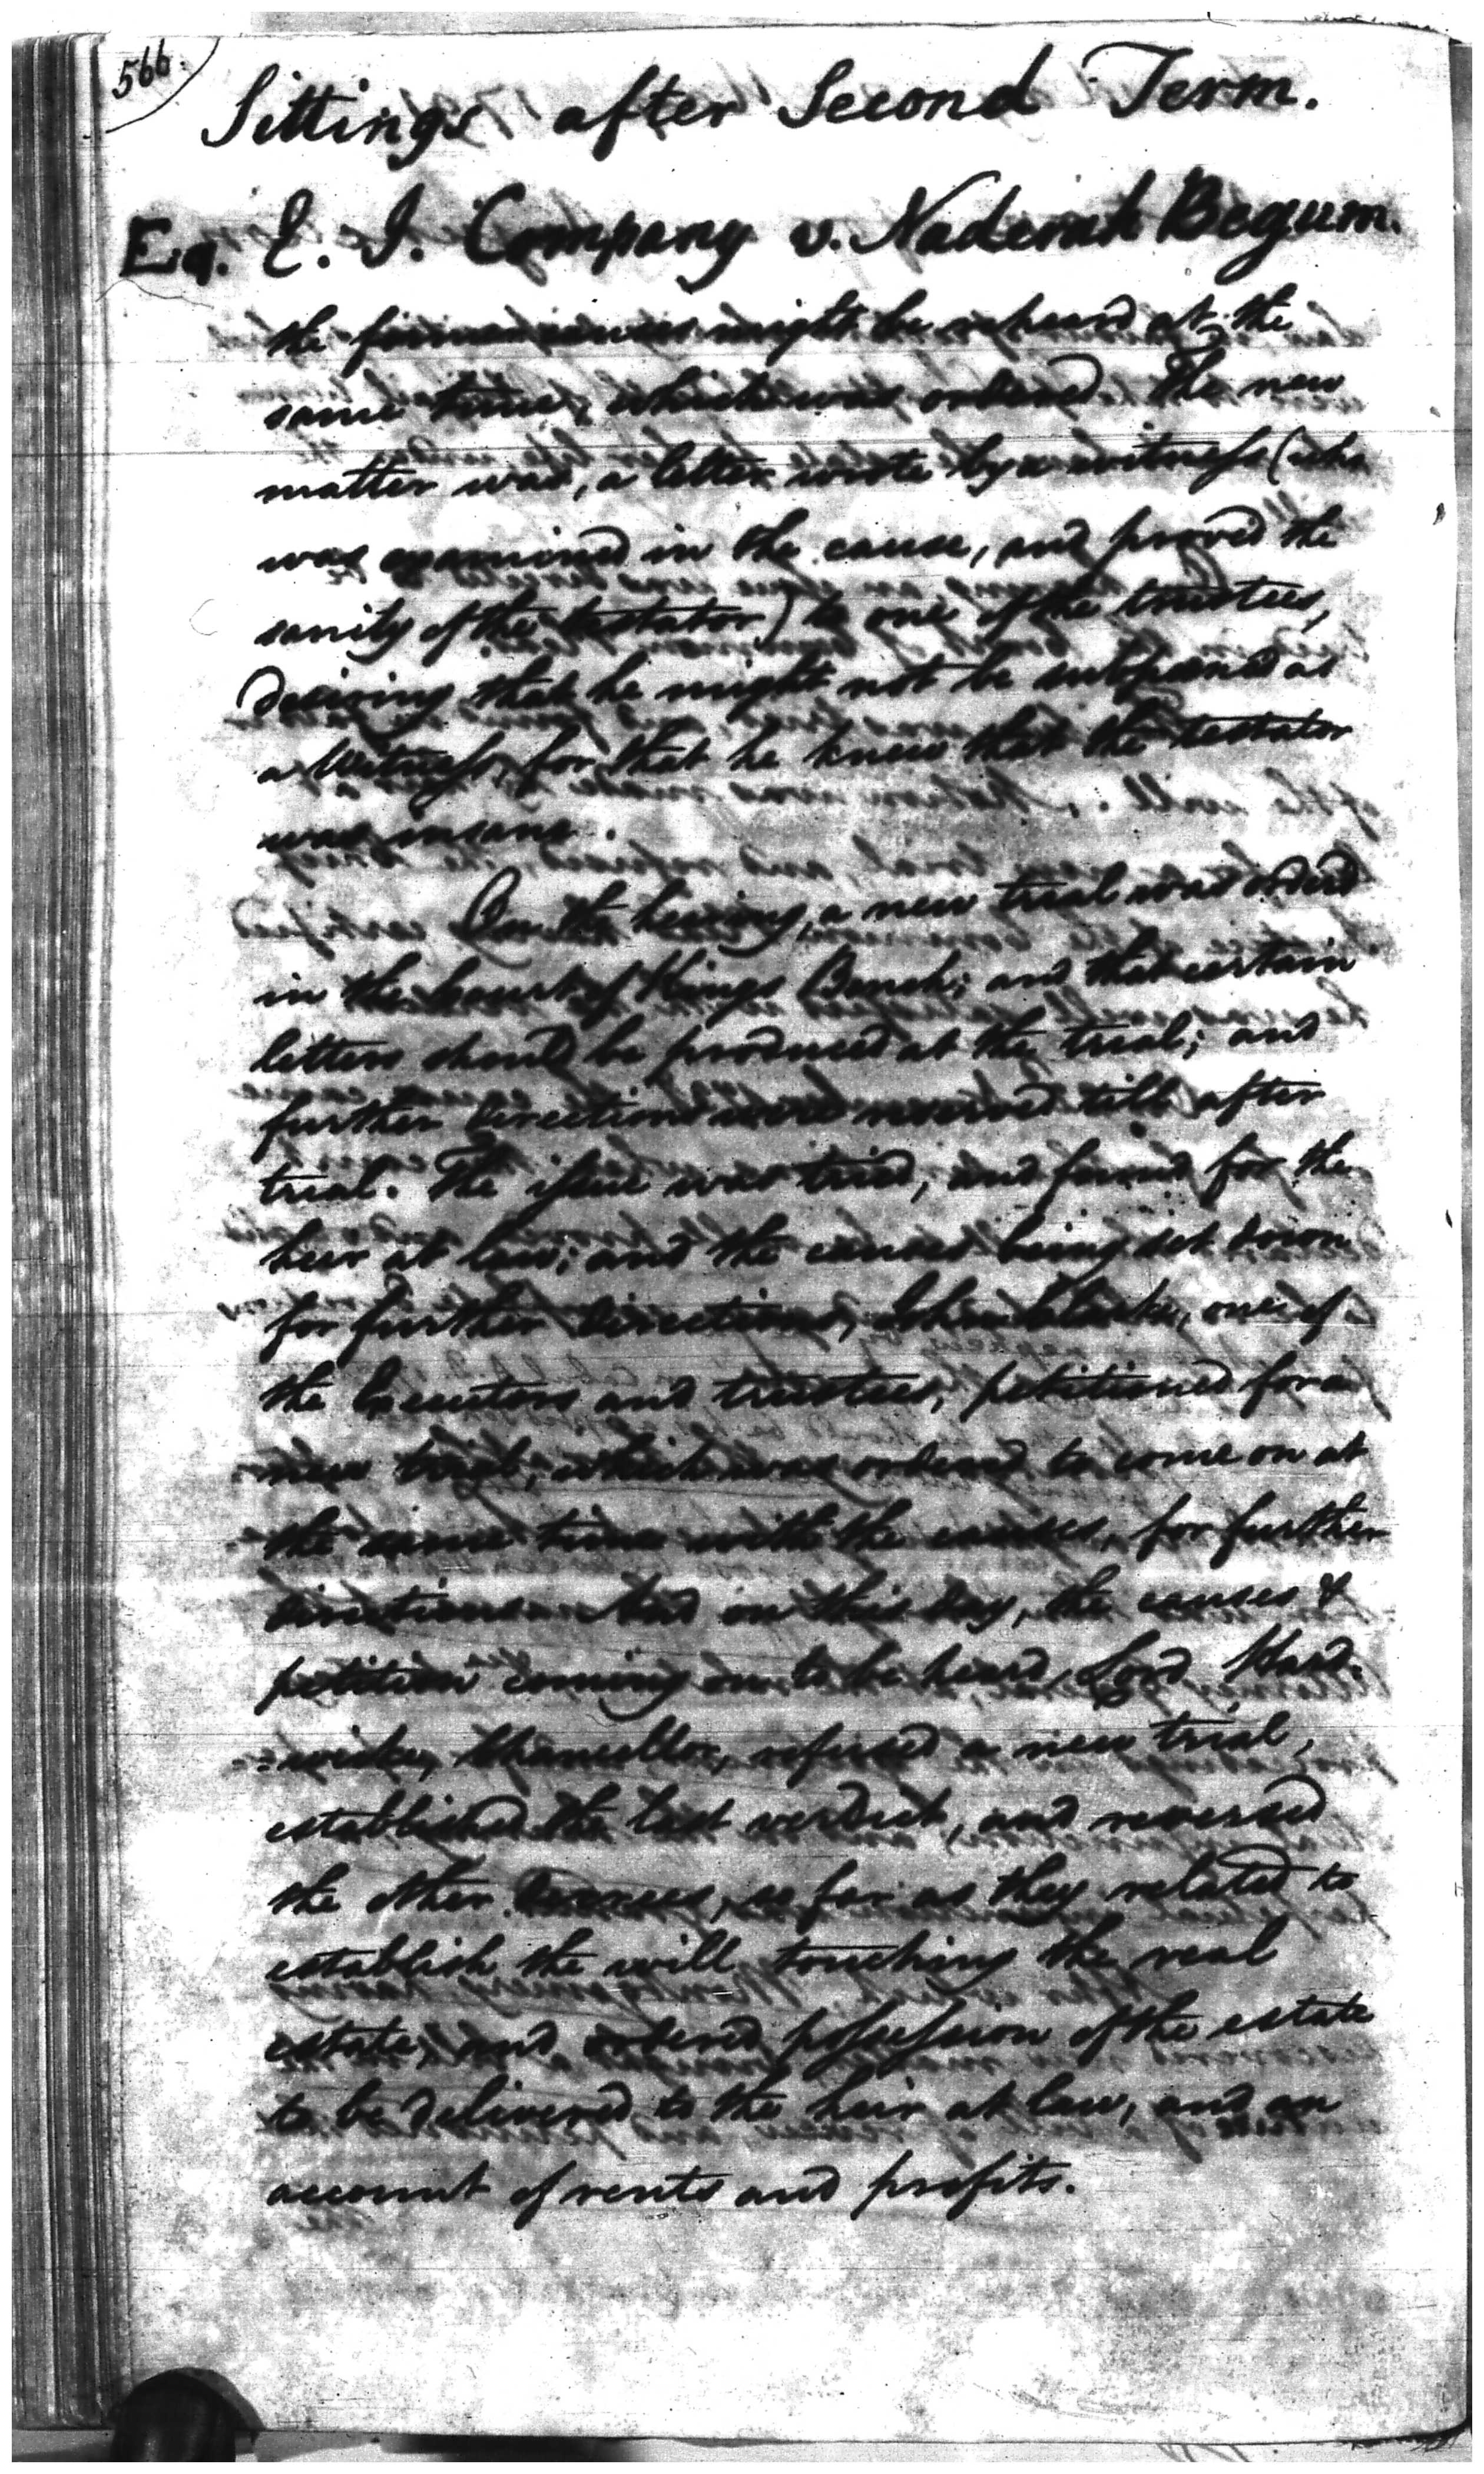 566.
Sittings after Second Term.
Eq. E. I. Company v. Naderah Begum.
the former causes might be reheard at the
same time, which was ordered. The new
matter was, a letter wrote by a witness (who
was examined in the cause, and proved the
sanity of the testator) to one of the trustees,
desiring that he might not be subpoena'd as
a witness, for that he knew that the testator
was insane.
On the hearing, a new trial was order'd
in the Court of Kings Bench; and that certain
letters should be produced at the trial; and
further directions were reserved till after
trial. The issue was tried, and found for the
heir at law; and the causes being set down
for further directions, John Clarke, one of
the Executors and trustees, petitioned for a
new trial, which was ordered to come on at
the same time with the causes, for further
directions. And on this day, the causes &
petition coming on to be heard, Lord Hard-
-wicke, Chancellor, refused a new trial,
established the last verdict, and reversed
the other Decrees, so far as they related to
establish the will touching the real
estate, and ordered possession of the estate
to be delivered to the heir at law, and an
account of rents and profits.